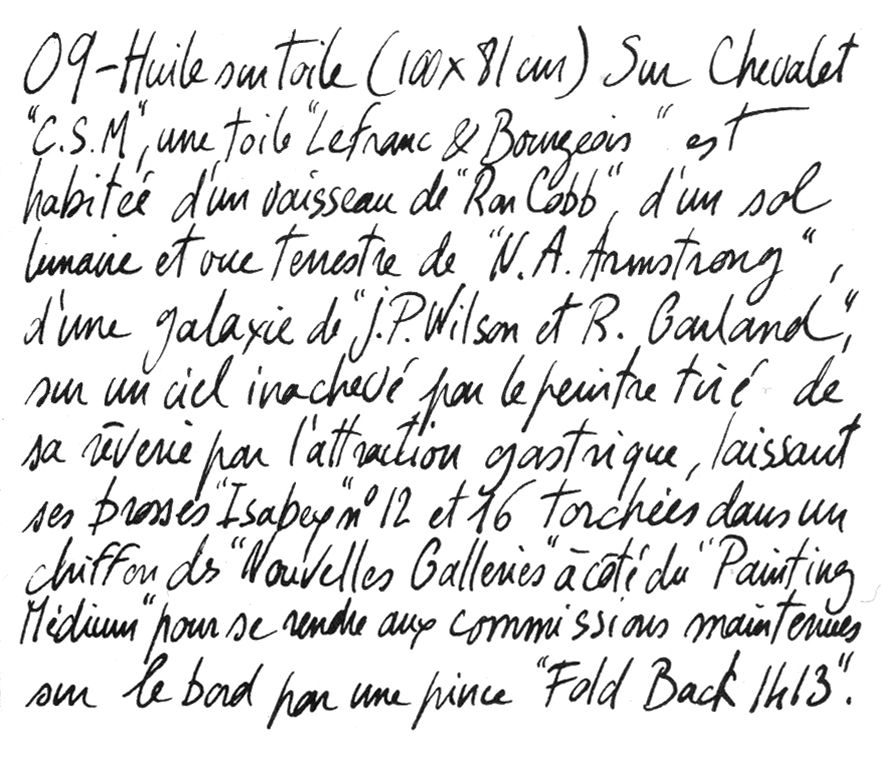 09-Huile sur toile (100x81cm) Sur Chevalet
"C.S.M", une toile "Lefranc & Bourgeois" est
habitée d'un vaisseau de "Ron Cobb", d'un sol
lunaire et vue terrestre de "N.A. Armstrong",
d'une galaxie de "J.P. Wilson et R. Garland",
sur un ciel inachevé par le peintre tiré de
sa rêverie par l'attraction gastrique, laissant
ses brosses "Isabey" n° 12 et 16 torchées dans un
chiffon des "Nouvelles Galleries" à côté du "Painting
Médium" pour se rendre aux commissions maintenues
sur le bord par une pince "Fold Back 1413".